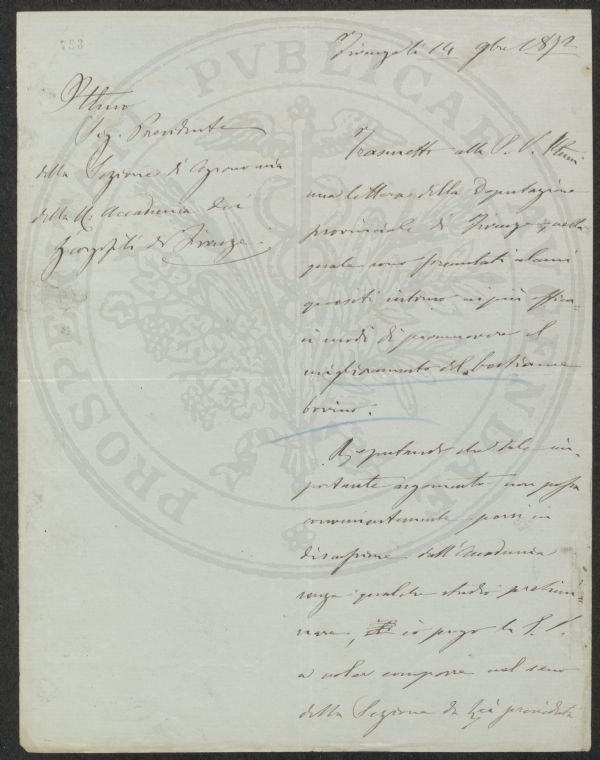 783
Firenze li 14 9bre 1872
Illmo
Sig. Presidente
della Sezione di Agronomia
della R. Accademia dei
Georgofili di Firenze.
Trasmetto alla S. V. Illma
una lettera della Deputazione
provinciale di Firenze, nella
quale sono formulati alcuni
quesiti intorno ai più effica-
ci modi di promuovere il
miglioramento del bestiame
bovino.
Reputando che tale im-
portante argomento non possa
convenientemente porsi in
discussione dall'Accademia
senza qualche studio prelimi-
nare, io prego la S. V.
a voler comporre nel seno
della Sezione da Lei presieduta
PROSPERITATI PUBLICAE AUGENDAE